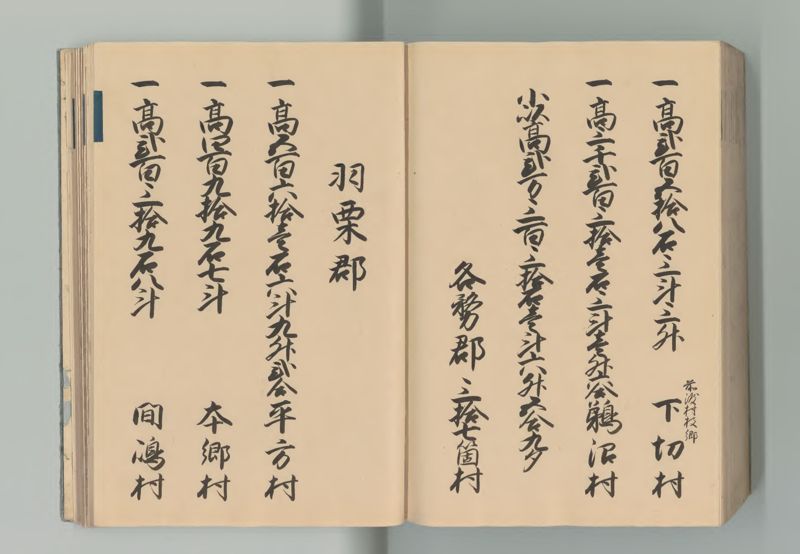 前渡村枝郷
一高弐百五拾八石三斗三升 下切村
一高三千弐百三拾壱石三斗壱升六合 鵜沼村
小以高弐万三百三拾石壱斗六升五合九夕
各務郡 三拾七箇村
羽栗郡
一高五百六拾壱石六斗九升弐合 平方村
一高四百九拾九石七斗 本郷村
一高弐百三拾九石八斗 間嶋村